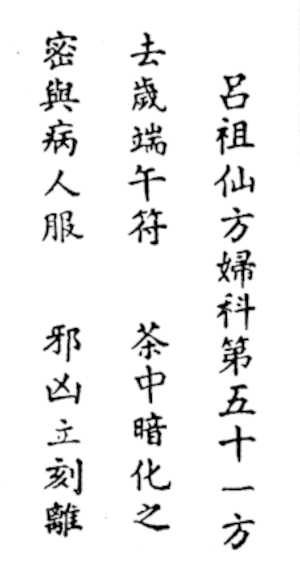 呂祖仙方婦科第五十一方
去歲端午符　茶中暗化之
密與病人服　邪凶立刻離